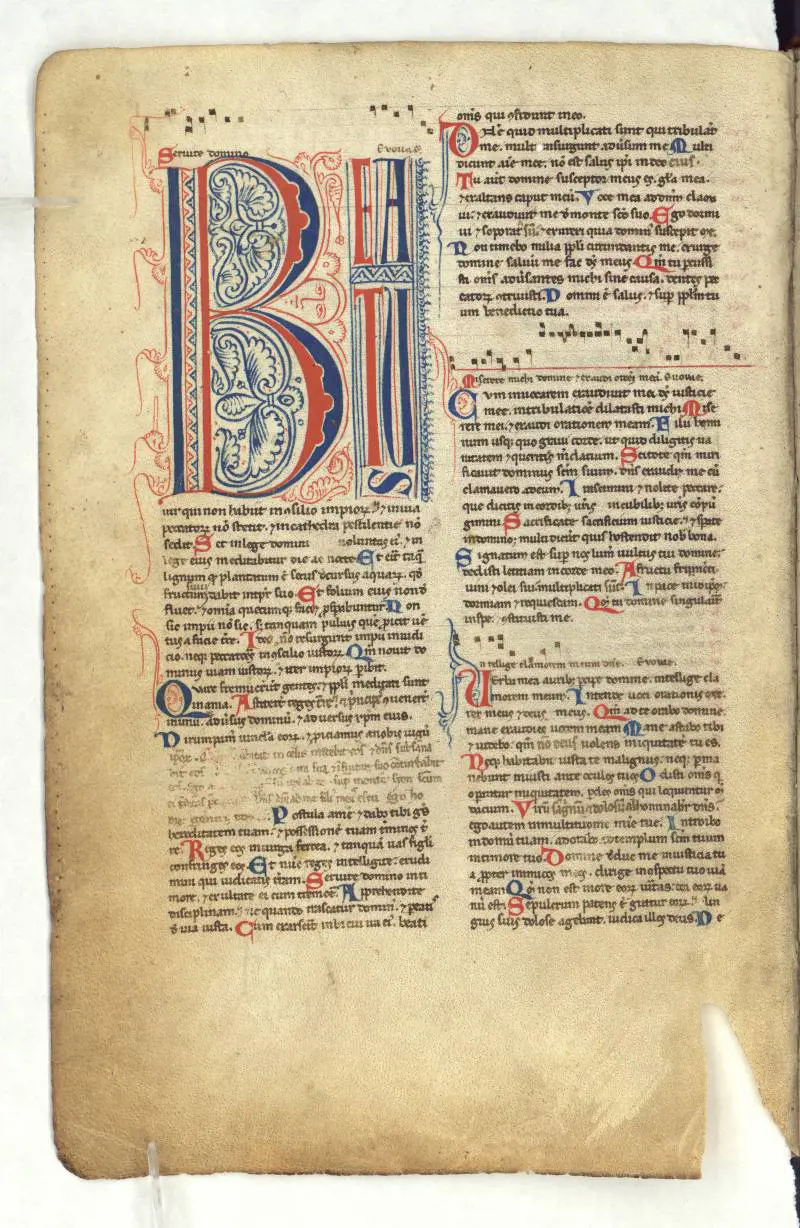 Seruite domino Euouae
BEATUS
uir qui non habiit in ɔsilio impioꝝ ⁊ in uia
peccatoꝝ nō stetit. ⁊ in cathedra pestilentie nō
sedit. Set in lege domini uoluntas eiꝰ. ⁊ in
lege eius meditabitur die ac nocte. Et erit tāqͣ
lignum qđ plantatum ē secus decursus aquaꝝ. qđ
fructum suum dabit in tp̄r suo. Et folium eius non d̄
fluet. ⁊ om̄ia quecumqꝫ faciet ꝓsp̄abuntur. Non
sic impii nō sic. sꝫ tanquam puluis quē ꝓicit uē
tus a facie t̄re. Ideo nō resurgunt impii in iudi
cio. neqꝫ peccatores in ɔsilio iustoꝝ. Qm̄ nouit do
minus uiam iustoꝝ. ⁊ iter impioꝝ ꝑibit.
Quare fremuerūt gentes. ⁊ ppl̄i meditati sunt
inania. Astiterūt reges t̄re. ⁊ pͥncipes ɔuenerūt
in unū. adūsus dominū. ⁊ aduersus xp̄m eius.
Dirumpamꝰ uincla eoꝝ. ⁊ ꝓiciamus a nobis iugū
ipoꝝ. habitat in celis irridebit eos ⁊ dn̄s subsāna
bit eos ira sua ⁊ ī furore suo ɔturbabit
sup montē scm̄ suum
dn̄s dix ad me filiꝰ meꝰ es tu. ego ho
die genui te. Postula a me ⁊ dabo tibi gētes
hereditatem tuam. ⁊ possessionē tuam t̄minos t̄
re. Reges eos in uirga ferrea. ⁊ tanquā uas figli
confringes eos. Et nūc reges intelligite. erudi
mini qui iudicatis t̄ram. Seruite domino in ti
more. ⁊ exultate ei cum tremore. Apprehendite
disciplinam. ne quando irascatur dominꝰ. ⁊ peatis
d̄ uia iusta. Cum exarserit in breui ira eiꝰ. beati
om̄s qui ɔfidunt in eo.
Domine quid multiplicati sunt qui tribulant
me. multi insurgunt adūsum me. Multi
dicunt aīe mee. nō est salus ip̄i in deo eius.
Tu aūt domine susceptor meus es. gl̄a mea.
⁊ exaltans caput meū. Voce mea ad dn̄m clama
ui. ⁊ exaudiuit me d̄ monte sc̄o suo. Ego dormi
ui ⁊ soporatꝰ sū. ⁊ exurrexi quia dominꝰ suscepit me.
Non timebo milia ppl̄i circundantis me. exurge
domine saluū me fac dꝰ meus. Qm̄ tu percussi
sti om̄s adūsantes michi sine causa. dentes pec
catoꝝ ɔtriuisti. Domini ē salus. ⁊ sup ppl̄m tu
um benedictio tua.
Miserere michi domine ⁊ exaudi oroēm meā. Euouae.
Cum inuocarem exaudiuit me. dꝰ iusticie
mee. in tribulatiōe dilatasti michi. Mise
rere mei. ⁊ exaudi orationem meam. Filii homi
num usqꝫ quo graui corde. ut quid diligitis ua
nitatem ⁊ queritis mendacium. Scitote qm̄ miri
ficauit dominus sc̄m suum. dn̄s exaudiet me cū
clamauero ad eum. Irascimini ⁊ nolite peccare.
que dicitis in cordibꝫ ur̄is in cubilibꝫ ur̄is cōpū
gimini. Sacrificate sacrificium iusticie. ⁊ spate
in domino. multi dicūt quis hostendit nob̄ bona.
Signatum est sup nos lum̄ uultus tui domine.
dedisti letitiam in corde meo. A fructu frumēti
uini ⁊ olei sui multiplicati sūt. In pace in idipm̄
dormiam ⁊ requiescam. Qm̄ tu domine singularit̄
in spe. ɔstituisti me.
Intellige clamorem meum dn̄e. Euouae.
Verba mea auribꝫ percipe domine. intellige cla
morem meum. Intende uoci orationis mee.
rex meus ⁊ deus meus. Qm̄ ad te orabo domine.
mane exaudies uocem meam. Mane astabo tibi
⁊ uidebo. qm̄ nō deus uolens iniquitatē tu es.
Neqꝫ habitabit iuxta te malignus. neqꝫ ꝑma
nebunt iniusti ante oculos tuos. Odisti om̄s qͥ
operātur iniquitatem. ꝑdes om̄s qui loquuntur m̄
dacium. Virū sāguinū ⁊ dolosū abhominabit̄ dn̄s.
ego autem in multitudine mīe tue. Introibo
in domū tuam. adorabo ad templum sc̄m tuum
in timore tuo. Domine deduc me in iusticia tu
a ꝓpter inimicos meos. dirige in ɔspectu tuo uiā
meam. Qm̄ non est in ore eoꝝ ueritas. cor eoꝝ ua
nū est. Sepulcrum patens ē guttur eoꝝ. lin
guis suis dolose agebant. iudica illos deus. De